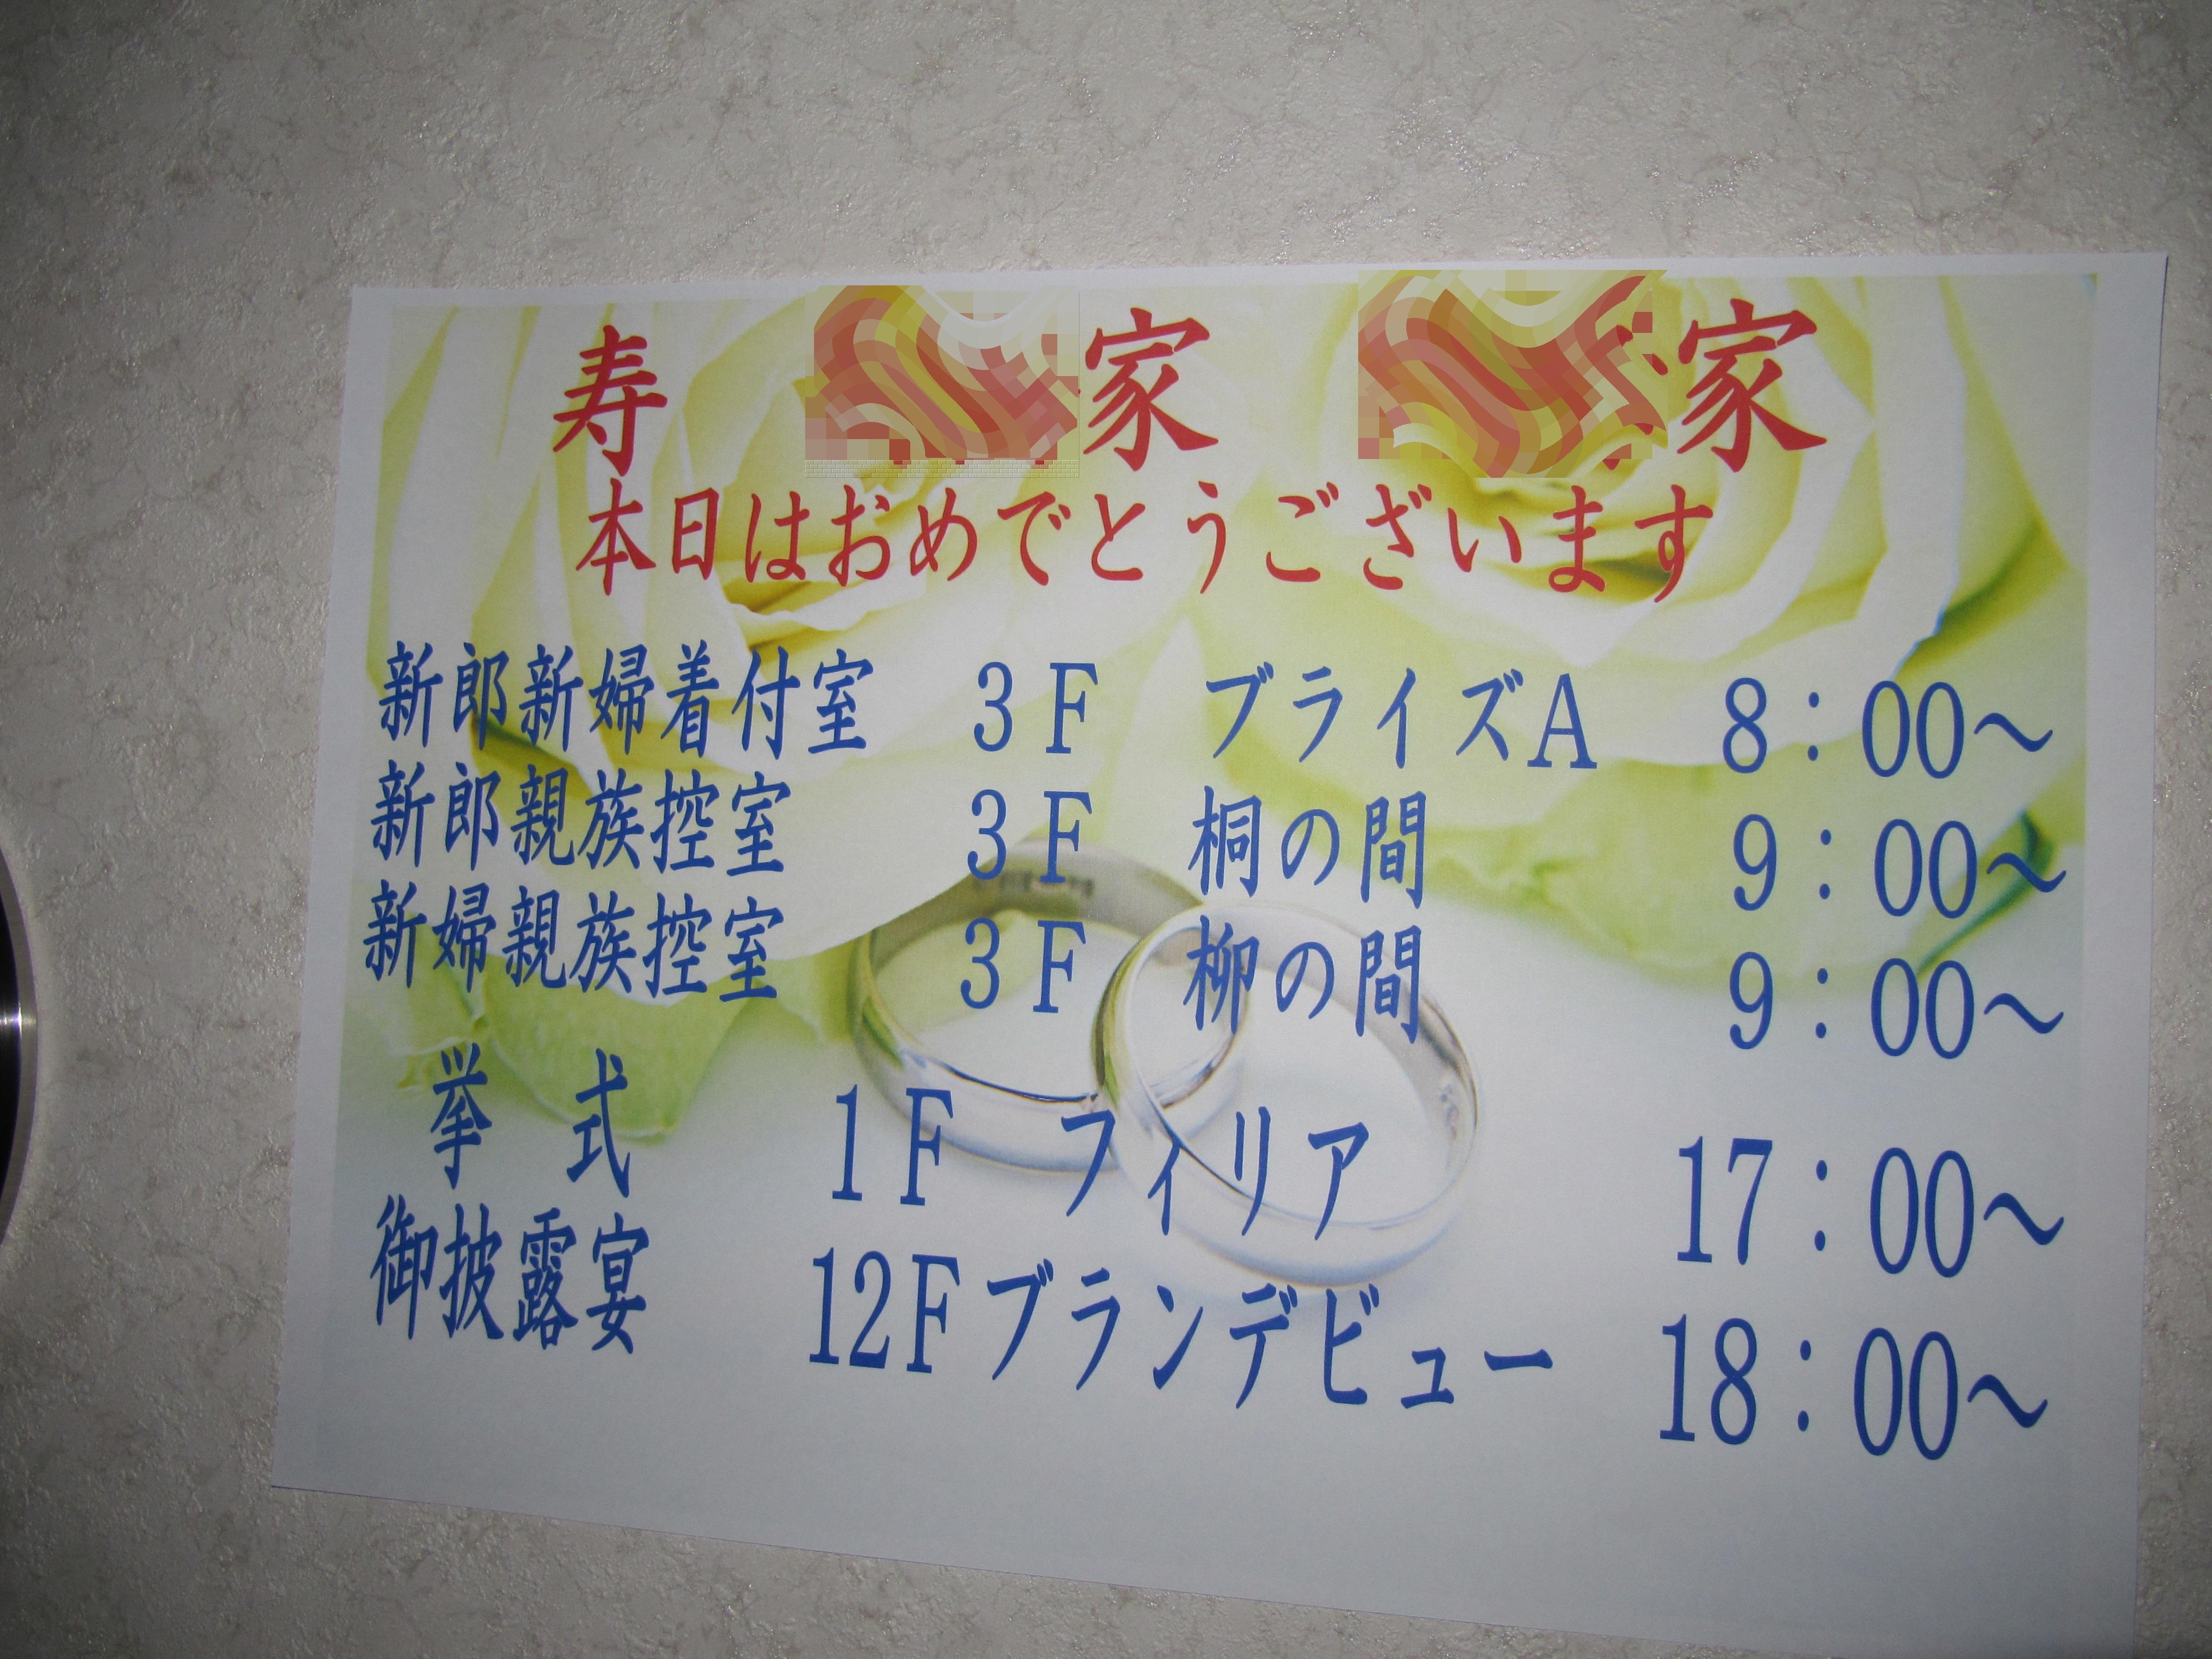 寿 家 家
本日はおめでとうございます
新郎新婦着付室 3F ブライズA 8:00～
新郎親族控室 3F 桐の間 9:00～
新婦親族控室 3F 柳の間 9:00～
挙 式 1F フィリア 17:00～
御披露宴 12F ブランデビュー 18:00～